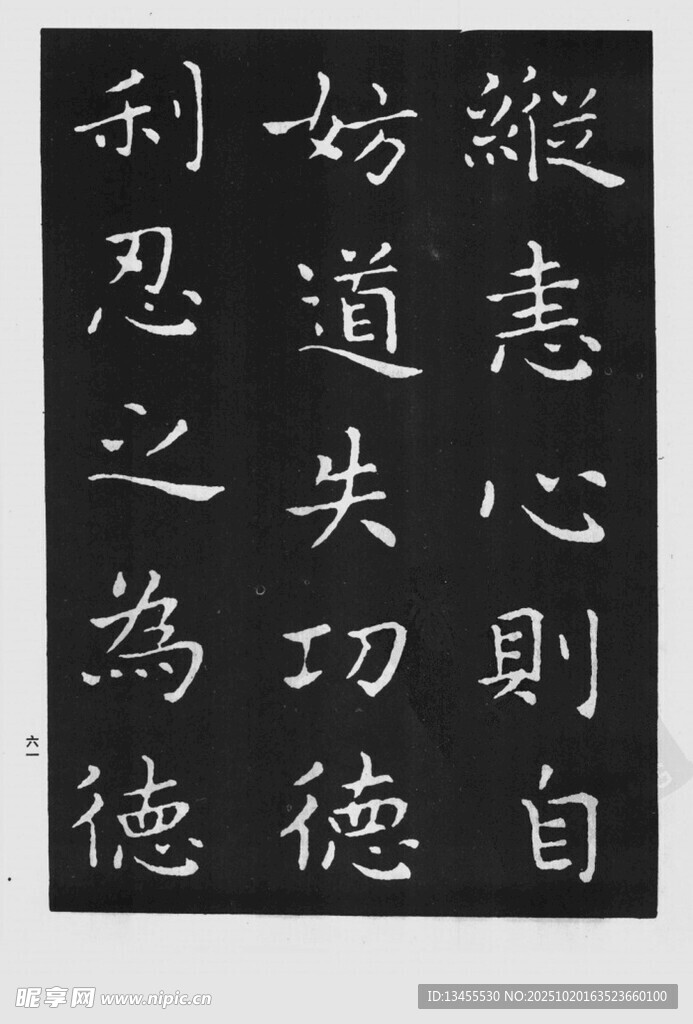 縱恚心則自
妨道失功德
利忍之為德
六一
昵享网 www.nipic.cn
ID:13455530 NO:20251020163523660100